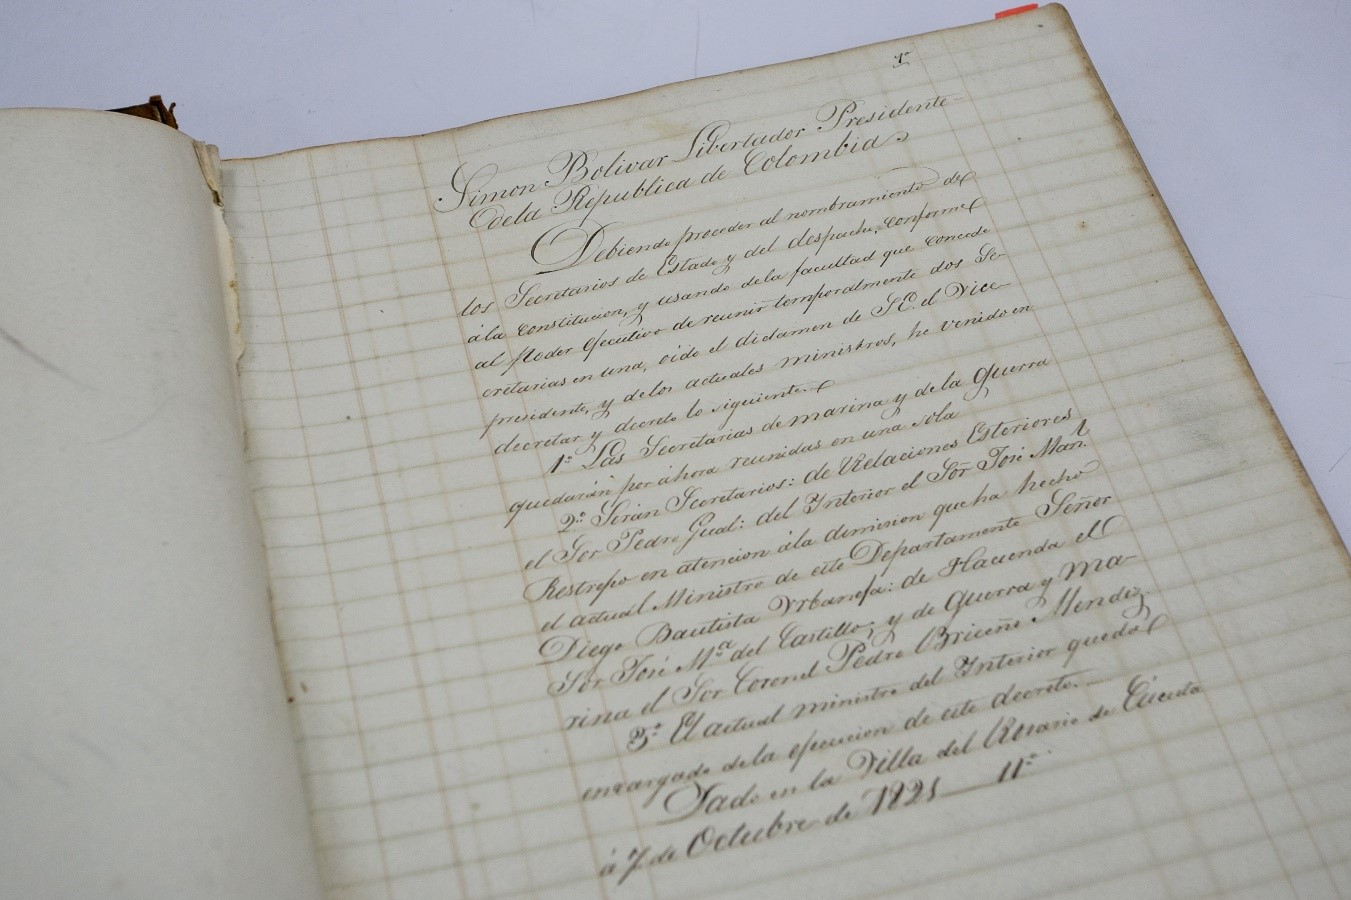 1º
Simon Bolivar Libertador Presidente
dela Republica de Colombia
Debiendo proceder al nombramiento de
los Secretarios de Estado y del despacho, conforme
ála constitucion, y usando dela facultad que concede
al Poder Ejecutivo de reunir temporalmente dos Se-
cretarias en una, oido el dictamen de S.E. el Vice-
presidente, y delos actuales ministros, he venido en
decretar y decreto lo siguiente.
1º Las Secretarias de marina y dela Guerra
quedarán por áhora reunidas en una sola
2º Serán Secretarios: de Relaciones Esteriores
el Sor Pedro Gual: del Interior el Sor José Manl.
Restrepo en atencion ála dimision que ha hecho
el actual Ministro de este Departamento Señor
Diego Bautista Urbaneja: de Hacienda el
Sor José Mª del Castillo; y de Guerra y Ma-
rina el Sor Coronel Pedro Briceño Mendez.
3º El actual ministro del Interior queda
encargado dela ejecucion de este decreto.
Dado en la Villa del Rosario de Cúcuta
á 7 de Octubre de 1821 — 11º